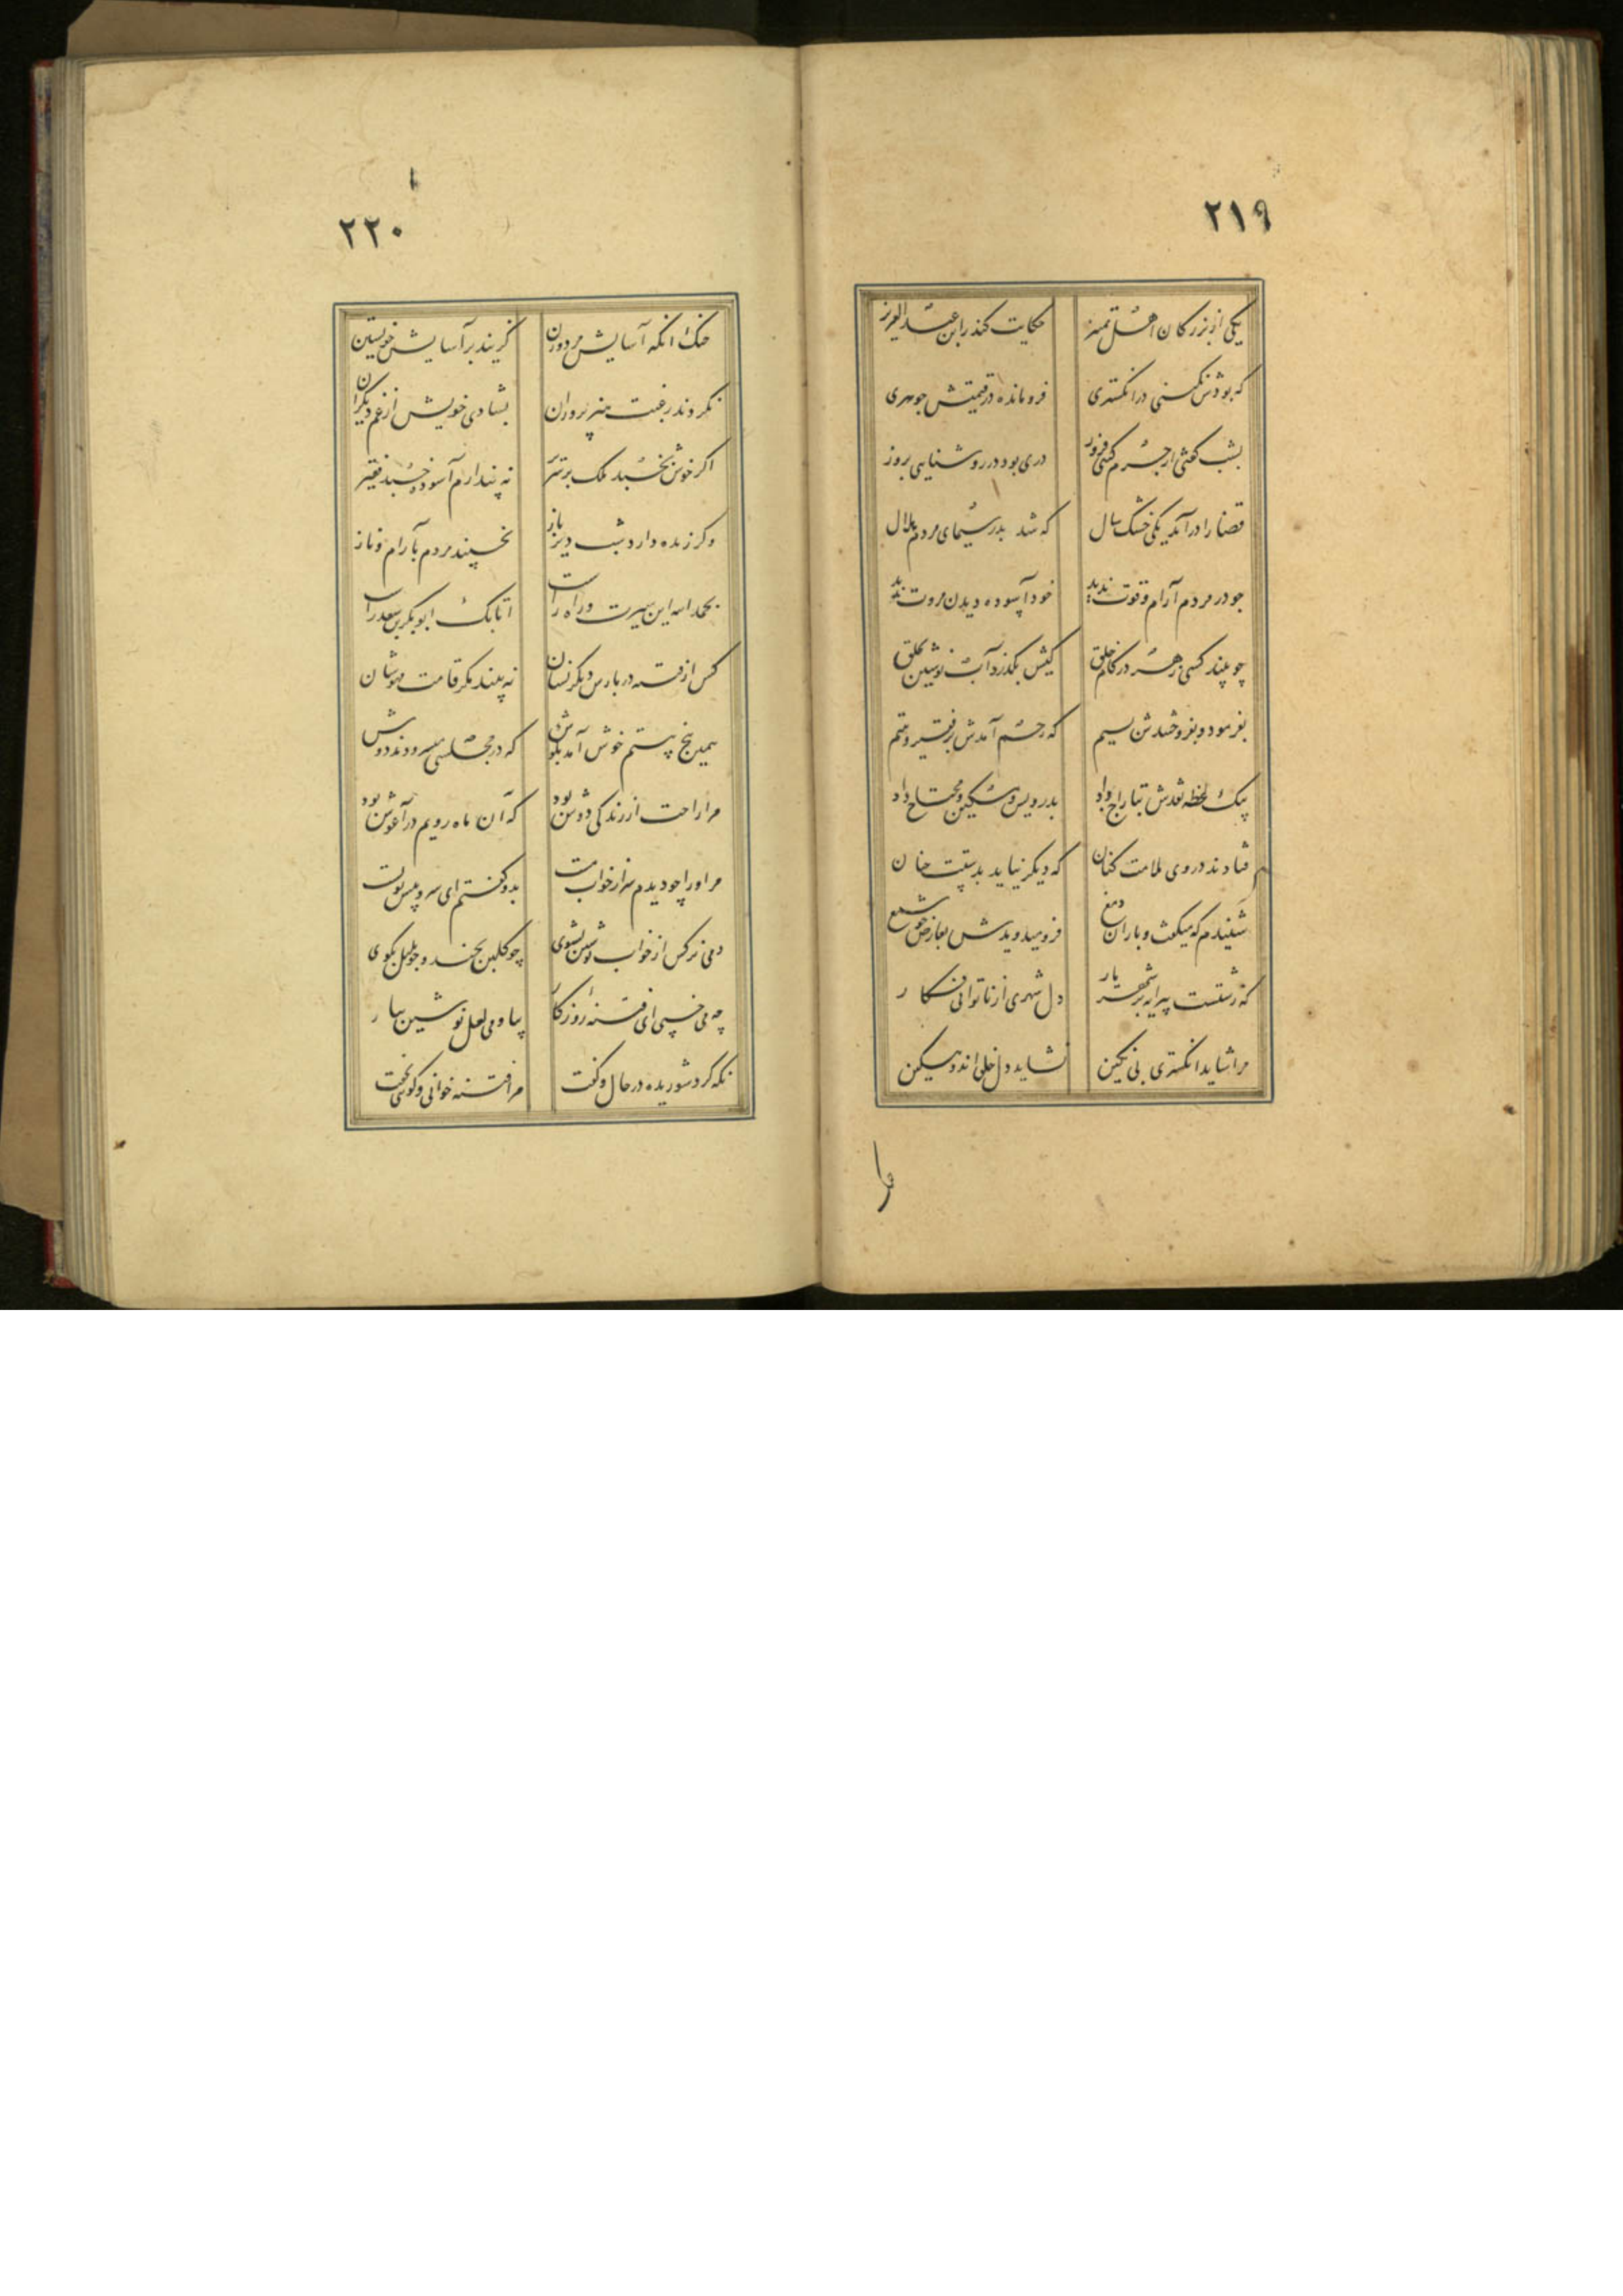 ۲۱۹
یکی از بزرکان اهل تمیز حکایت کند ز ابن عبد العزیز
که بودش نکینی در انکشتری فرومانده در قیمتش جوهری
بشب کفتی از جرم کیتی فروز دری بود در روشنایی بروز
قضا را درآمد یکی خشک سال که شد بدر سیمای مردم هلال
جو در مردم آرام و قوت ندید خود آسوده دیدن مروت ندید
چو بیند کسی زهر در کام خلق کیش بگذرد آب نوشین بحلق
بفرمود و بفروختندش بسیم که رحم آمدش بر فقیر و یتیم
بیک لحظه نقدش بتاراج داد بدرویش و مسکین و محتاج داد
فتادند در وی ملامت کنان که دیکر نیاید بدستت چنان
شنیدم که میکفت و باران دمع فرو میدویدش بعارض چو شمع
که زشتست پیرایه بر شهریار دل شهری از ناتوانی فکار
مرا شاید انکشتری بی نکین نشاید دل خلقی اندوهکین
مرا
۲۲۰
خنک انکه آسایش مرد و زن کزیند بر آسایش خویشتن
نکردند رغبت هنر پروران بشادی خویش از غم دیکران
اکر خوش بخسبد ملک بر سریر نه پندارم آسوده خسبد فقیر
وکر زنده دارد شب دیر باز بخسپند مردم بآرام و ناز
بحمد الله این سیرت و راه راست اتابک ابوبکر بن سعد راست
کس از فتنه در پارس دیکر نشان نه بیند مکر قامت مهوشان
یمین پنج بیتم خوش آمد بکوش که در مجلسی میسرودند دوش
مرا راحت از زندکی دوش بود که آن ماه رویم در آغوش بود
مر او را چو دیدم سر از خواب مست بدو کفتم ای سرو پیش تو پست
دمی نرکس از خواب نوشین بشوی چو کلبن بخند و چو بلبل بکوی
چه می خسپی ای فتنه روزکار بیا و می لعل نوشین بیار
نکه کرد شوریده در حال و کفت مرا فتنه خوانی و کویی مخفت